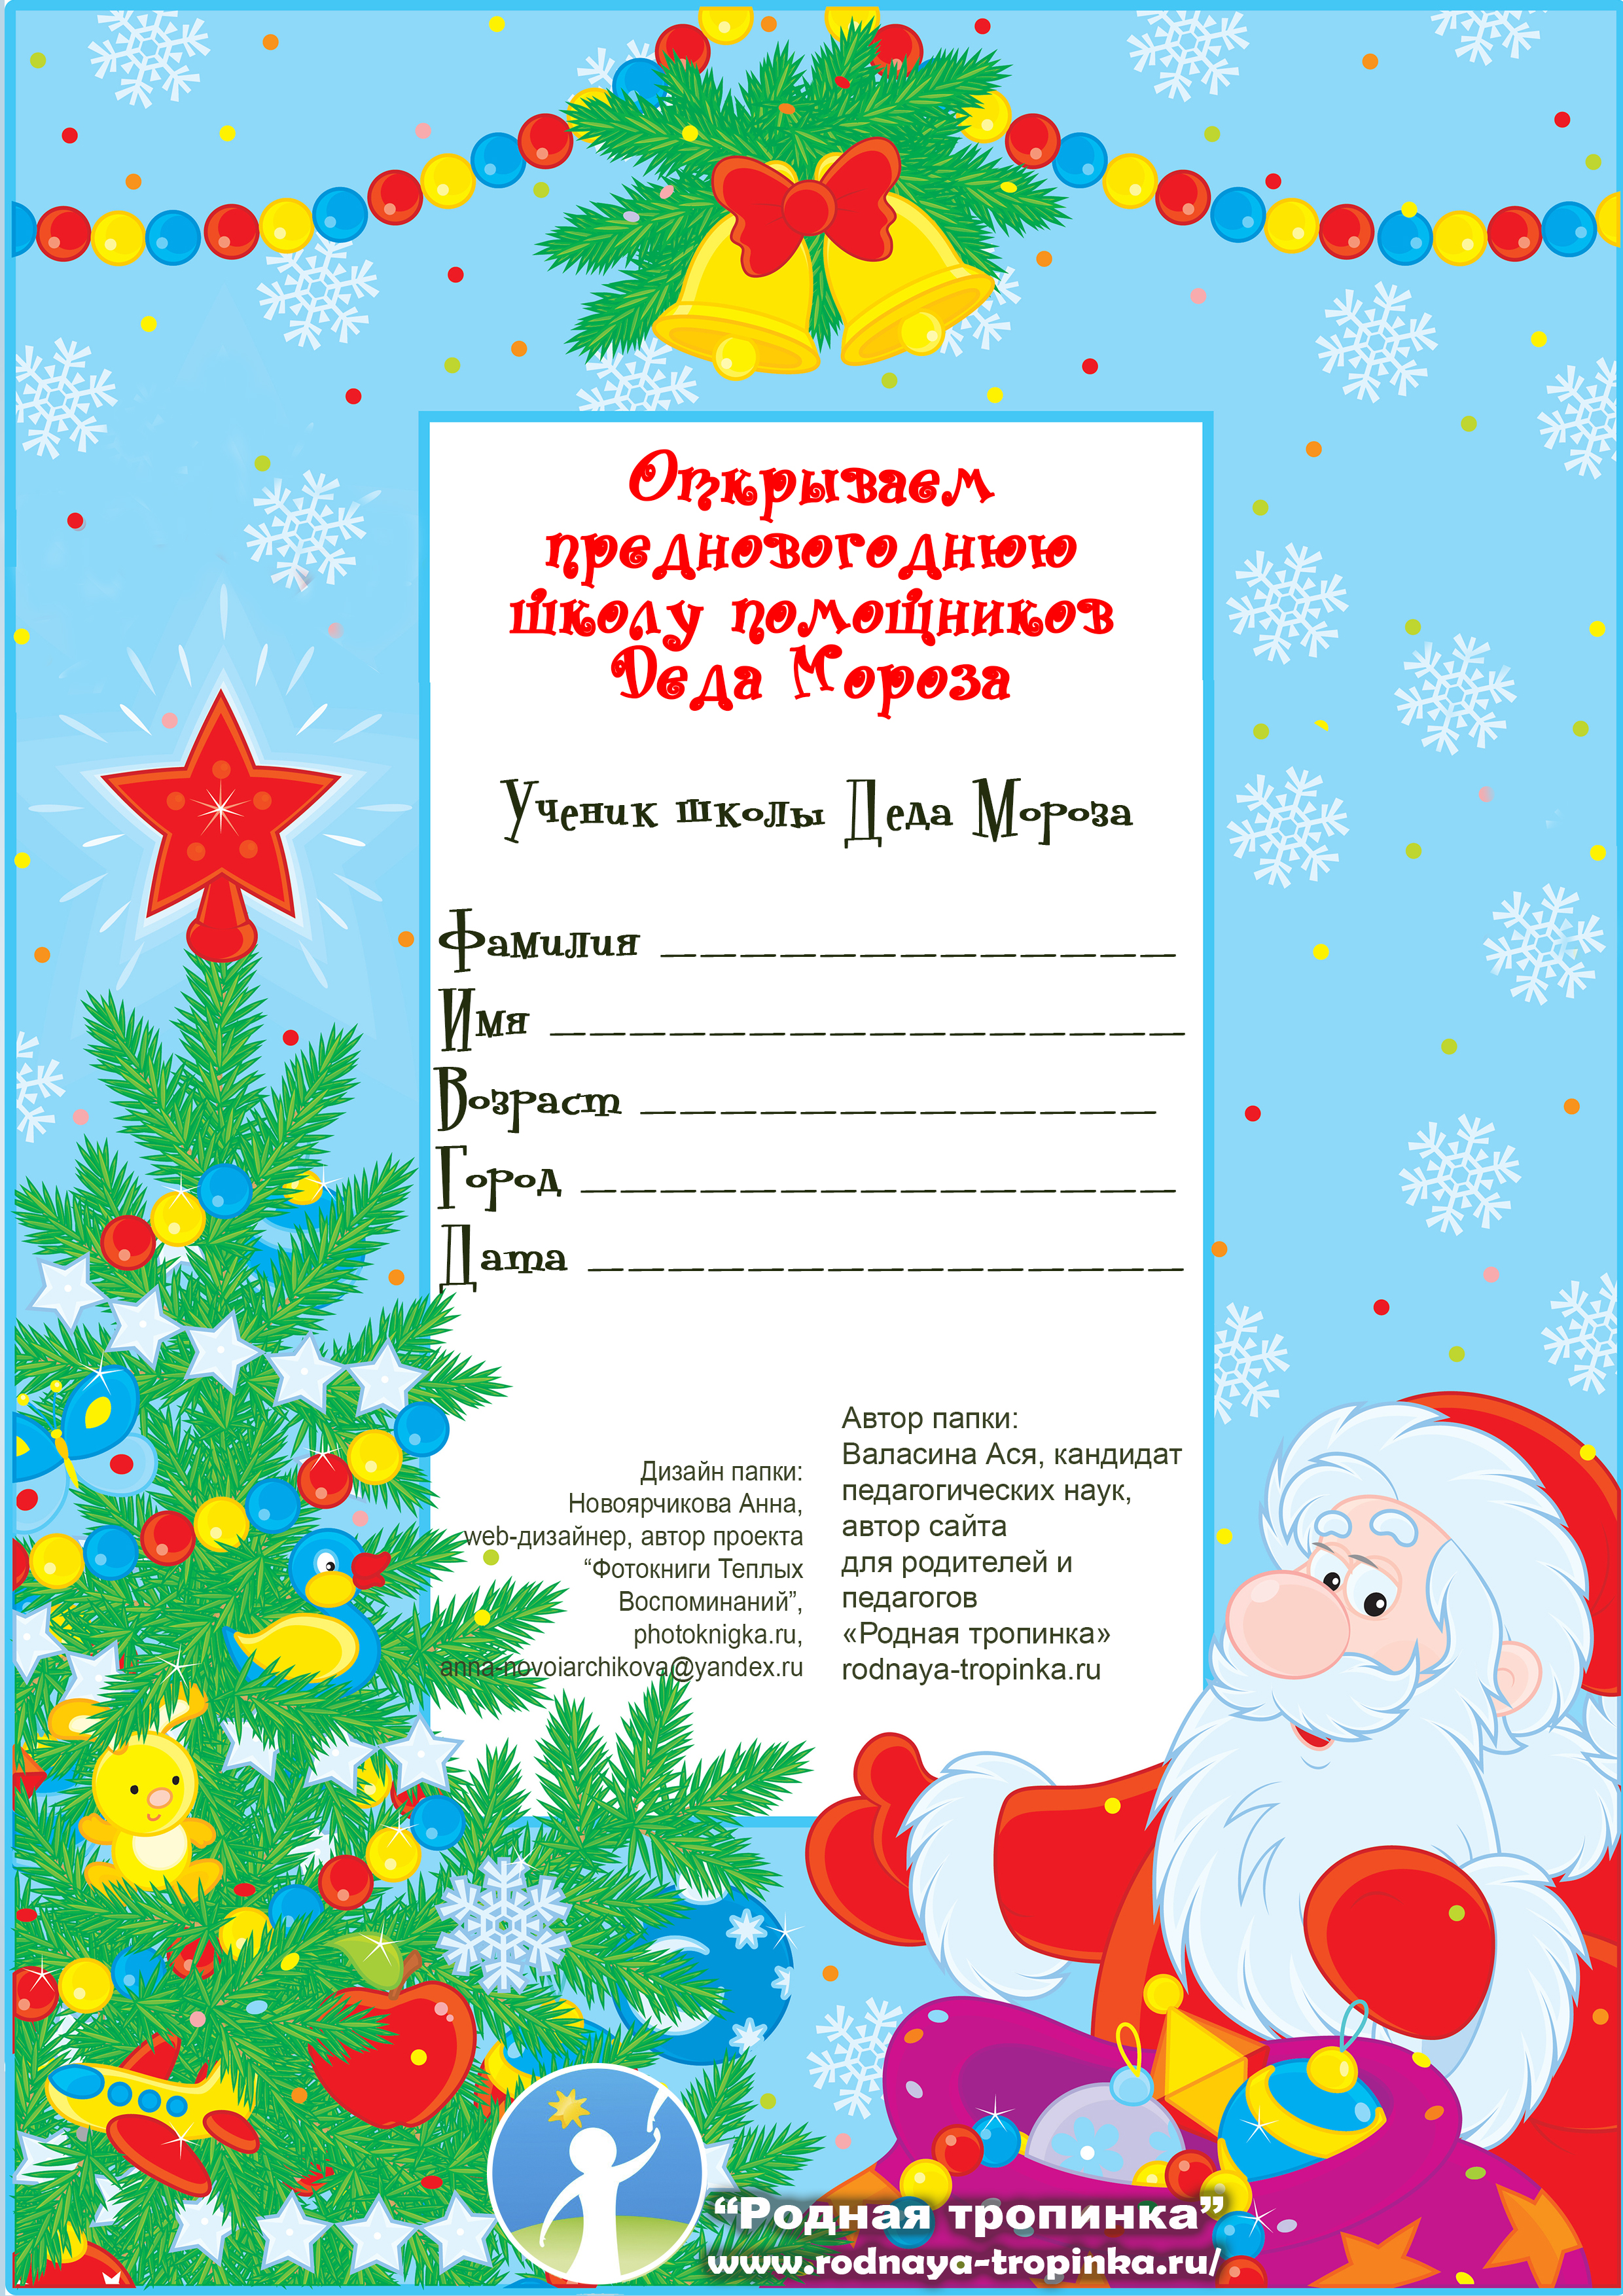 Открываем
предновогоднюю
школу помощников
Деда Мороза
Ученик школы Деда Мороза
Фамилия _____________
Имя ________________
Возраст _____________
Город _______________
Дата _______________
Дизайн папки:
Новоярчикова Анна,
web-дизайнер, автор проекта
“Фотокниги Теплых
Воспоминаний”,
photoknigka.ru,
anna-novoiarchikova@yandex.ru
Автор папки:
Валасина Ася, кандидат
педагогических наук,
автор сайта
для родителей и
педагогов
«Родная тропинка»
rodnaya-tropinka.ru
“Родная тропинка”
www.rodnaya-tropinka.ru/